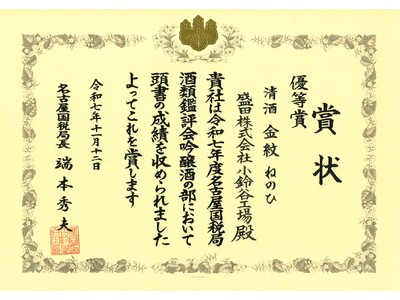 賞状
優等賞
清酒 金紋 ねのひ
盛田株式会社小鈴谷工場殿
貴社は令和七年度名古屋国税局
酒類鑑評会吟醸酒の部において
頭書の成績を収められました
よってこれを賞します
令和七年十一月十二日
名古屋国税局長 端本秀夫